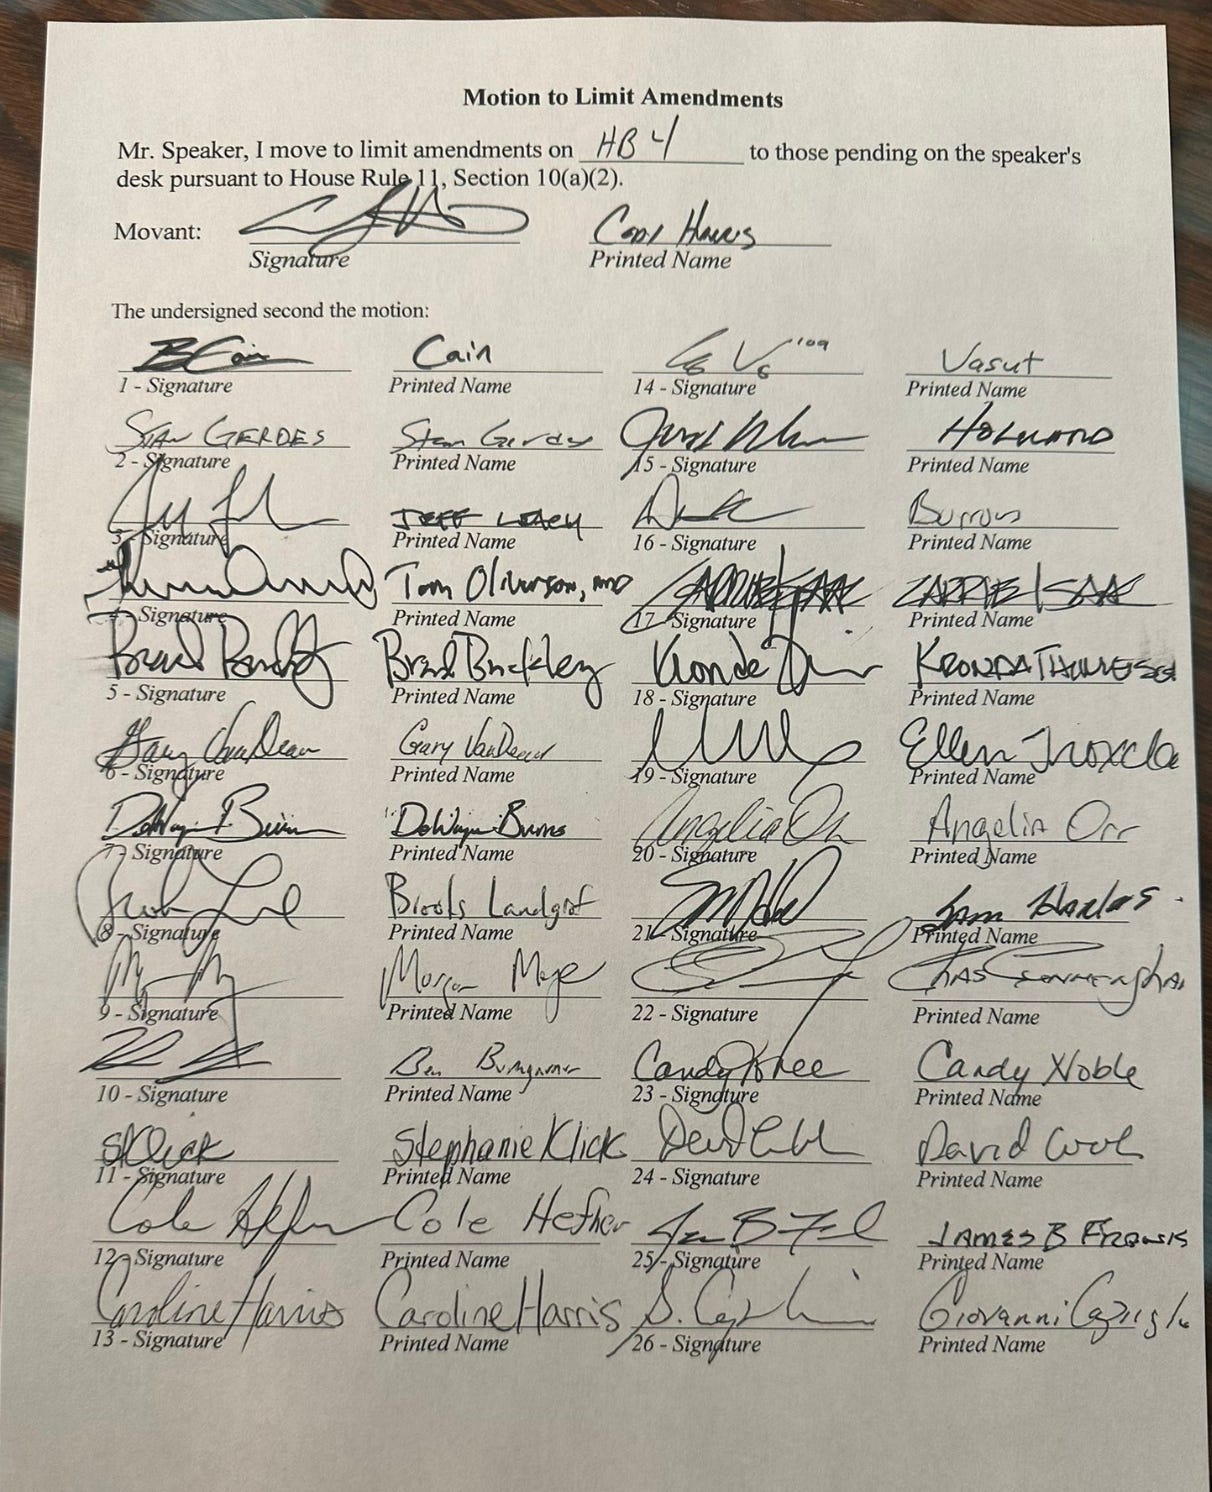 Motion to Limit Amendments
Mr. Speaker, I move to limit amendments on HB 4 to those pending on the speaker's
desk pursuant to House Rule 11, Section 10(a)(2).
Movant: Cody Harris
Signature Printed Name
The undersigned second the motion:
BCain Cain Vasut
1 - Signature Printed Name 14 - Signature Printed Name
Stan GERDES Stan Gerdes HOLLAND
2 - Signature Printed Name 15 - Signature Printed Name
JEFF LEACH Burrows
3 - Signature Printed Name 16 - Signature Printed Name
Tom Oliverson, MD CARRIE ISAAC CARRIE ISAAC
4 - Signature Printed Name 17 - Signature Printed Name
Brad Buckley Brad Buckley
5 - Signature Printed Name 18 - Signature Printed Name
Gary VanDeaver Gary VanDeaver Ellen Troxcla
6 - Signature Printed Name 19 - Signature Printed Name
DeWayne Burns DeWayne Burns Angelia Orr Angelia Orr
7 - Signature Printed Name 20 - Signature Printed Name
Brooks Landgraf Sam Harless
8 - Signature Printed Name 21 - Signature Printed Name
Morgan Meyer
9 - Signature Printed Name 22 - Signature Printed Name
Ben Bumgarner Candy Noble Candy Noble
10 - Signature Printed Name 23 - Signature Printed Name
SKlick Stephanie Klick David Cook David Cook
11 - Signature Printed Name 24 - Signature Printed Name
Cole Hefner Cole Hefner JAMES B FRANK
12 - Signature Printed Name 25 - Signature Printed Name
Caroline Harris Caroline Harris Giovanni Capriglio
13 - Signature Printed Name 26 - Signature Printed Name